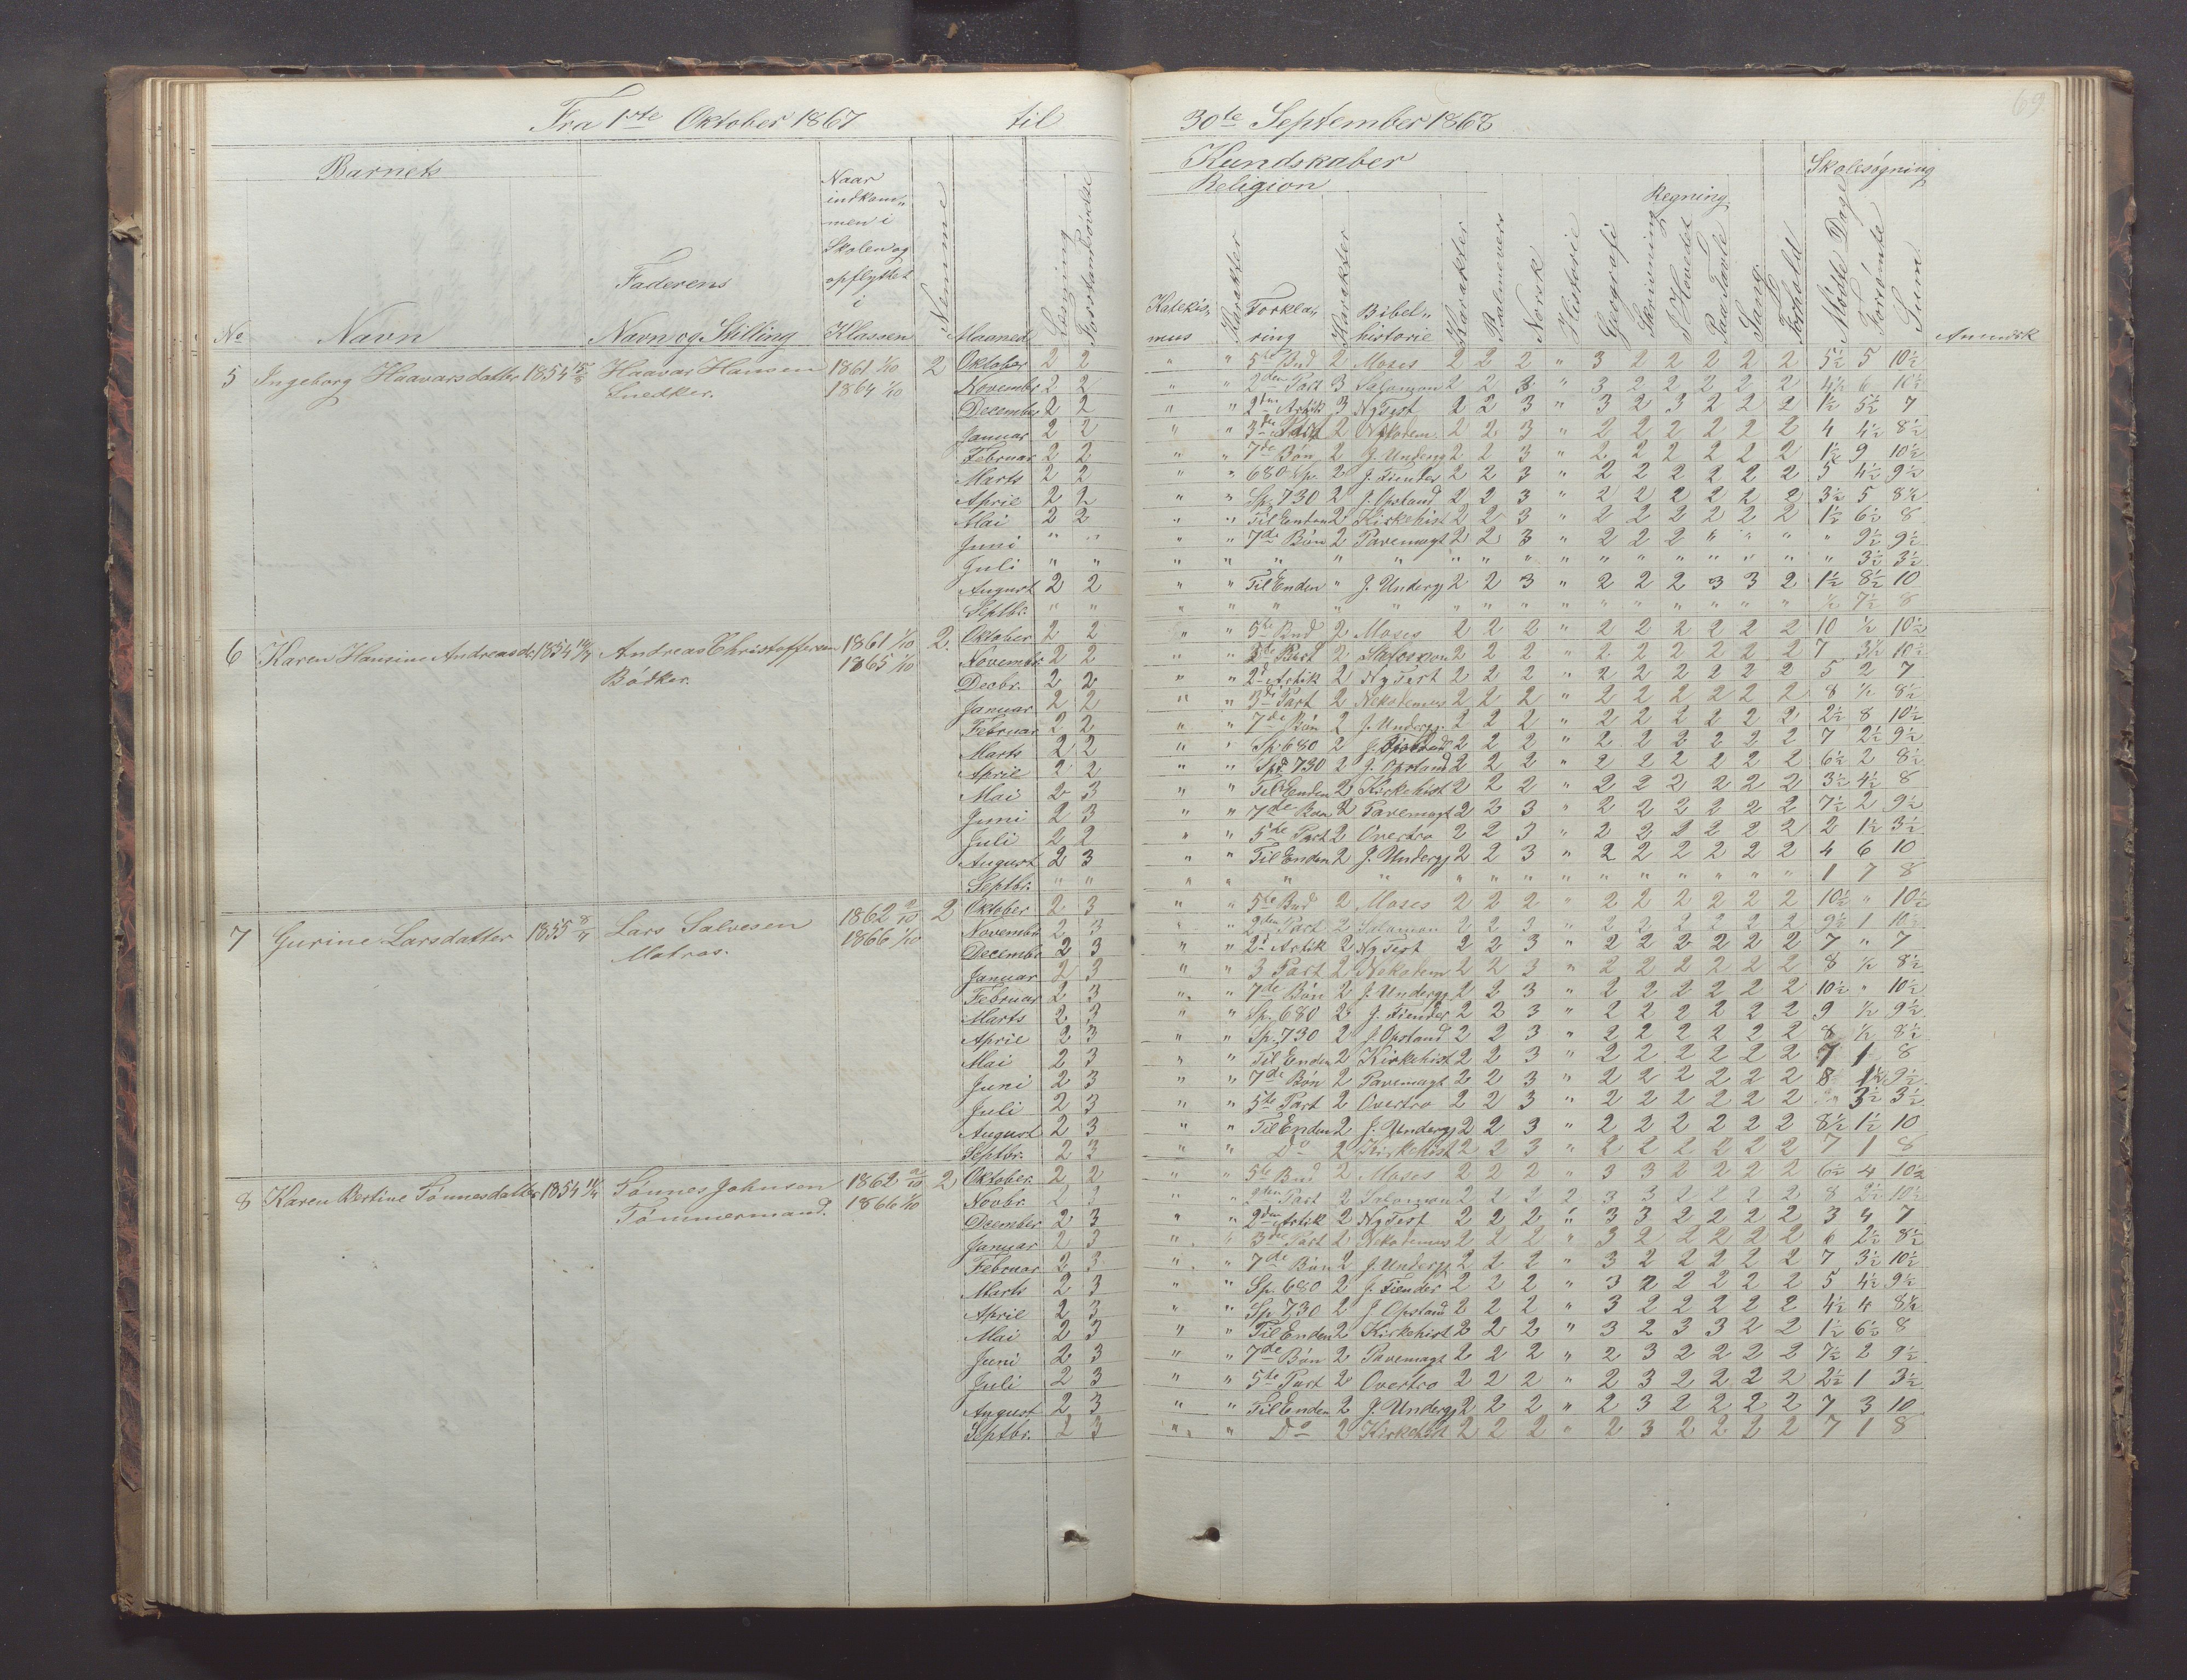 Fra 1ste Oktober 1867 til 30te September 1868
69
Barnets
Kundskaber
Religion
Regning
Skolesøgning
No
Navn
Faderens
Navn og Stilling
Naar
indkom„
men i
Skolen og
opflyttet
i
Klassen
Nemme
Maaned
Læsning
Forstandsøvelse
Katekis„
mus
Karakter
Forkla„
ring
Karakter
Bibel„
historie
Karakter
Psalmevers
Norsk
Historie
Geografi
Skrivning
I Hovedet
Paa Tavle
Sang
Forhold
Mødte Dage
Forsømte
Sum
Anmærk
5 Ingeborg Haavarsdatter 1854 Haavar Hansen 1861 1/10 2
Snedker. 1864 1/10
Oktober 2 2 " " 5te Bud 2 Moses 2 2 2 " 3 2 2 2 2 2 5½ 5 10½
November 2 2 " " 2den Part 3 Salomon 2 2 3 " 3 2 2 2 2 2 4½ 6 10½
December 2 2 " " 2den Artik 3 Ny Test 2 2 3 " 3 2 3 2 2 2 1½ 5½ 7
Januar 2 2 " " 3de Part 2 Nikodem. 2 2 3 " 2 2 2 2 2 2 4 4½ 8½
Februar 2 2 " " 7de Bøn 2 J. Undergj 2 2 3 " 2 2 2 2 2 2 1½ 9 10½
Marts 2 2 " " 680 Sp. 2 J. Fiender 2 2 3 " 2 2 2 2 2 2 5 4½ 9½
April 2 2 " " Sp. 730 2 J. Opstand 2 2 3 " 2 2 2 2 2 2 3½ 5 8½
Mai 2 2 " " Til Enden 2 Kirkehist 2 2 3 " 2 2 2 2 2 2 1½ 6½ 8
Juni " " " " 7de Bøn 2 Pavemagt 2 2 3 " 2 2 2 " " " " 9½ 9½
Juli " " " " " " " " " " " " " " " " " " 3½ 3½
August 2 2 " " Til Enden " J. Undergj 2 2 3 " 2 2 2 3 3 2 1½ 8½ 10
Septbr. " " " " " " " " " " " " " " " " " ½ 7½ 8
6 Karen Hansine Andreasd. 1854 Andreas Christoffersen 1861 1/10 2.
Bødker. 1865 1/10
Oktober 2 2 " " 5te Bud 2 Moses 2 2 2 " 2 2 2 2 2 2 10 ½ 10½
Novembr 2 2 " " Part 2 2 2 2 " 2 2 2 2 2 2 7 3½ 10½
Decbr. 2 2 " " 2d Artik 2 Ny Test 2 2 2 " 2 2 2 2 2 2 5 2 7
Januar 2 2 " " 3di Part 2 Nekodemus 2 2 2 " 2 2 2 2 2 2 8 ½ 8½
Februar 2 2 " " 7de Bøn 2 J. Undergj. 2 2 2 " 2 2 2 2 2 2 2½ 8 10½
Marts 2 2 " " Sp. 680 2 J. 2 2 2 " 2 2 2 2 2 2 7 2½ 9½
April 2 2 " " Spd. 730 2 J. Opstand 2 2 2 " 2 2 2 2 2 2 6½ 2 8½
Mai 2 3 " " Til Enden 2 Kirkehist 2 2 2 " 2 2 2 2 2 2 3½ 4½ 8
Juni 2 3 " " 7de Bøn 2 Pavemagt 2 2 3 " 2 2 2 2 2 2 7½ 2 9½
Juli 2 2 " " 5te Part 2 Overtro 2 2 3 " 2 2 2 2 2 2 2 1½ 3½
August 2 3 " " Til Enden 2 J. Undergj 2 2 3 " 2 2 2 2 2 2 4 6 10
Septbr. " " " " " " " " " " " " " " " " " 1 7 8
7 Gurine Larsdatter 1855 8/11 Lars Salvesen 1862 2/10 2
Matros. 1866 1/10
Oktober 2 3 " " 5te Bud 2 Moses 2 2 2 " 2 2 2 2 2 2 10½ " 10½
November 2 3 " " 2den Part 2 Salomon 2 2 3 " 2 2 2 2 2 2 9½ 1 10½
Decembr 2 3 " " 2d Artik 2 Ny Test 2 2 3 " 2 2 2 2 2 2 7 " 7
Januar 2 3 " " 3 Part 2 Nekodem 2 2 3 " 2 2 2 2 2 2 8 ½ 8½
Februar 2 3 " " 7de Bøn 2 J. Undergj 2 2 3 " 2 2 2 2 2 2 10½ " 10½
Marts 2 3 " " Sp. 680 2 J. Fiender 2 2 3 " 2 2 2 2 2 2 9 ½ 9½
April 2 3 " " Sp. 730 2 J. Opstand 2 2 3 " 2 2 2 2 2 2 8 ½ 8½
Mai 2 3 " " Til Enden 2 Kirkehist 2 2 3 " 2 2 2 2 2 2 7 1 8
Juni 2 3 " " 7de Bøn 2 Pavemagt 2 2 3 " 2 2 2 2 2 2 8 1½ 9½
Juli 2 3 " " 5te Part 2 Overtro 2 2 3 " 2 2 2 2 2 2 " 3½ 3½
August 2 3 " " Til Enden 2 J. Undergj 2 2 3 " 2 2 2 2 2 2 8½ 1½ 10
Septbr. 2 3 " " Do 2 Kirkehist 2 2 3 " 2 2 2 2 2 2 7 1 8
8 Karen Bertine Tønnesdatter 1854 Tønnes Johnsen 1862 2/10 2
Tømmermand. 1866 1/10
Oktober 2 2 " " 5te Bud 2 Moses 2 2 2 " 3 3 2 2 2 2 6½ 4 10½
Novbr. 2 " " 2den Part 2 Salomon 2 2 2 2 3 3 2 2 2 2 8 2½ 10½
December 2 3 " " 2den Artik 2 Ny Test 2 2 2 " 3 3 2 2 2 2 3 4 7
Januar 2 3 " " 3de Part 2 Nekodemus 2 2 2 " 3 2 2 2 2 2 6 2½ 8½
Februar 2 3 " " 7de Bøn 2 J. Undergj. 2 2 2 " 3 2 2 2 2 2 7 3½ 10½
Marts 2 3 " " Sp. 680 2 J. Fiender 2 2 2 " 3 2 2 2 2 2 5 4½ 9½
April 2 3 " " Sp. 730 2 J. Opstand 2 2 2 " 3 2 2 2 2 2 4½ 4 8½
Mai 2 3 " " Til Enden 2 Kirkehist 2 2 2 " 3 2 3 3 2 2 1½ 6½ 8
Juni 2 3 " " 7de Bøn 2 Pavemagt 2 2 2 " 2 3 2 2 2 2 7½ 2 9½
Juli 2 3 " " 5te Part 2 Overtro 2 2 2 " 2 3 2 2 2 2 2½ 1 3½
August 2 3 " " Til Enden 2 J. Undergj 2 2 2 " 2 3 2 2 2 2 7 3 10
Septbr. 2 3 " " Do 2 Kirkehist 2 2 2 " 2 3 2 2 2 2 7 1 8